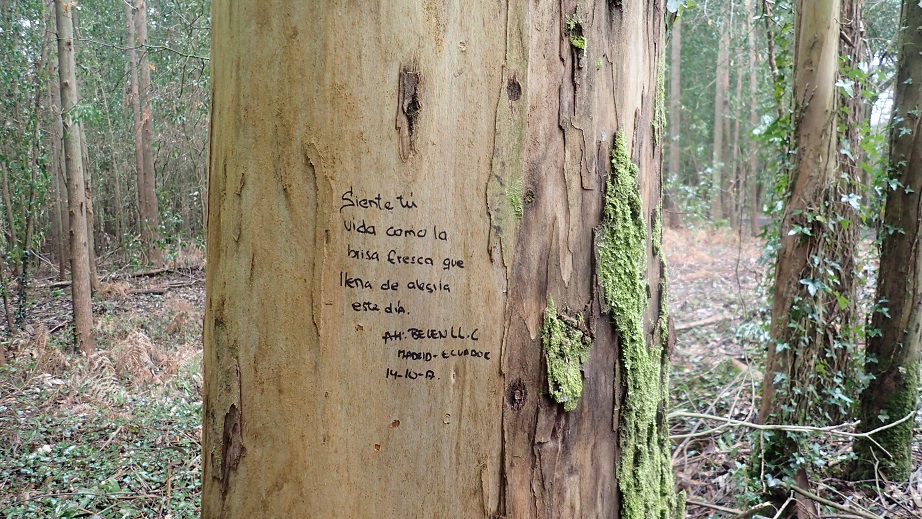 Siente tú
vida como la
brisa fresca que
llena de alegria
este día.
AH. BELEN LL. C
MADRID - ECUADOR
14-10-17.